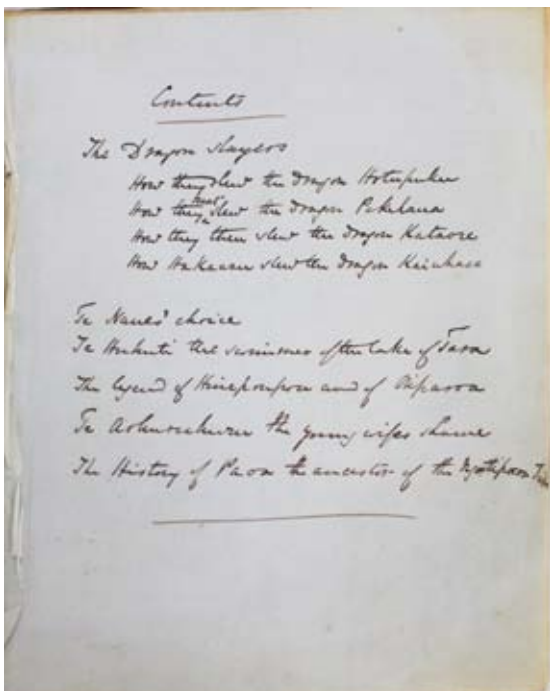 Contents
The Dragon Slayers
How they slew the dragon Hotupuku
How they next slew the dragon Pekehaua
How they then slew the dragon Kataore
How Hakawau slew the dragon
Te choice
Te Huhuti the swimmer of the lake of
The legend of Hinepoupou and of Oliparoa
Te the young wifes shame
The History of Paoa the ancestor of the Ngatipaoa